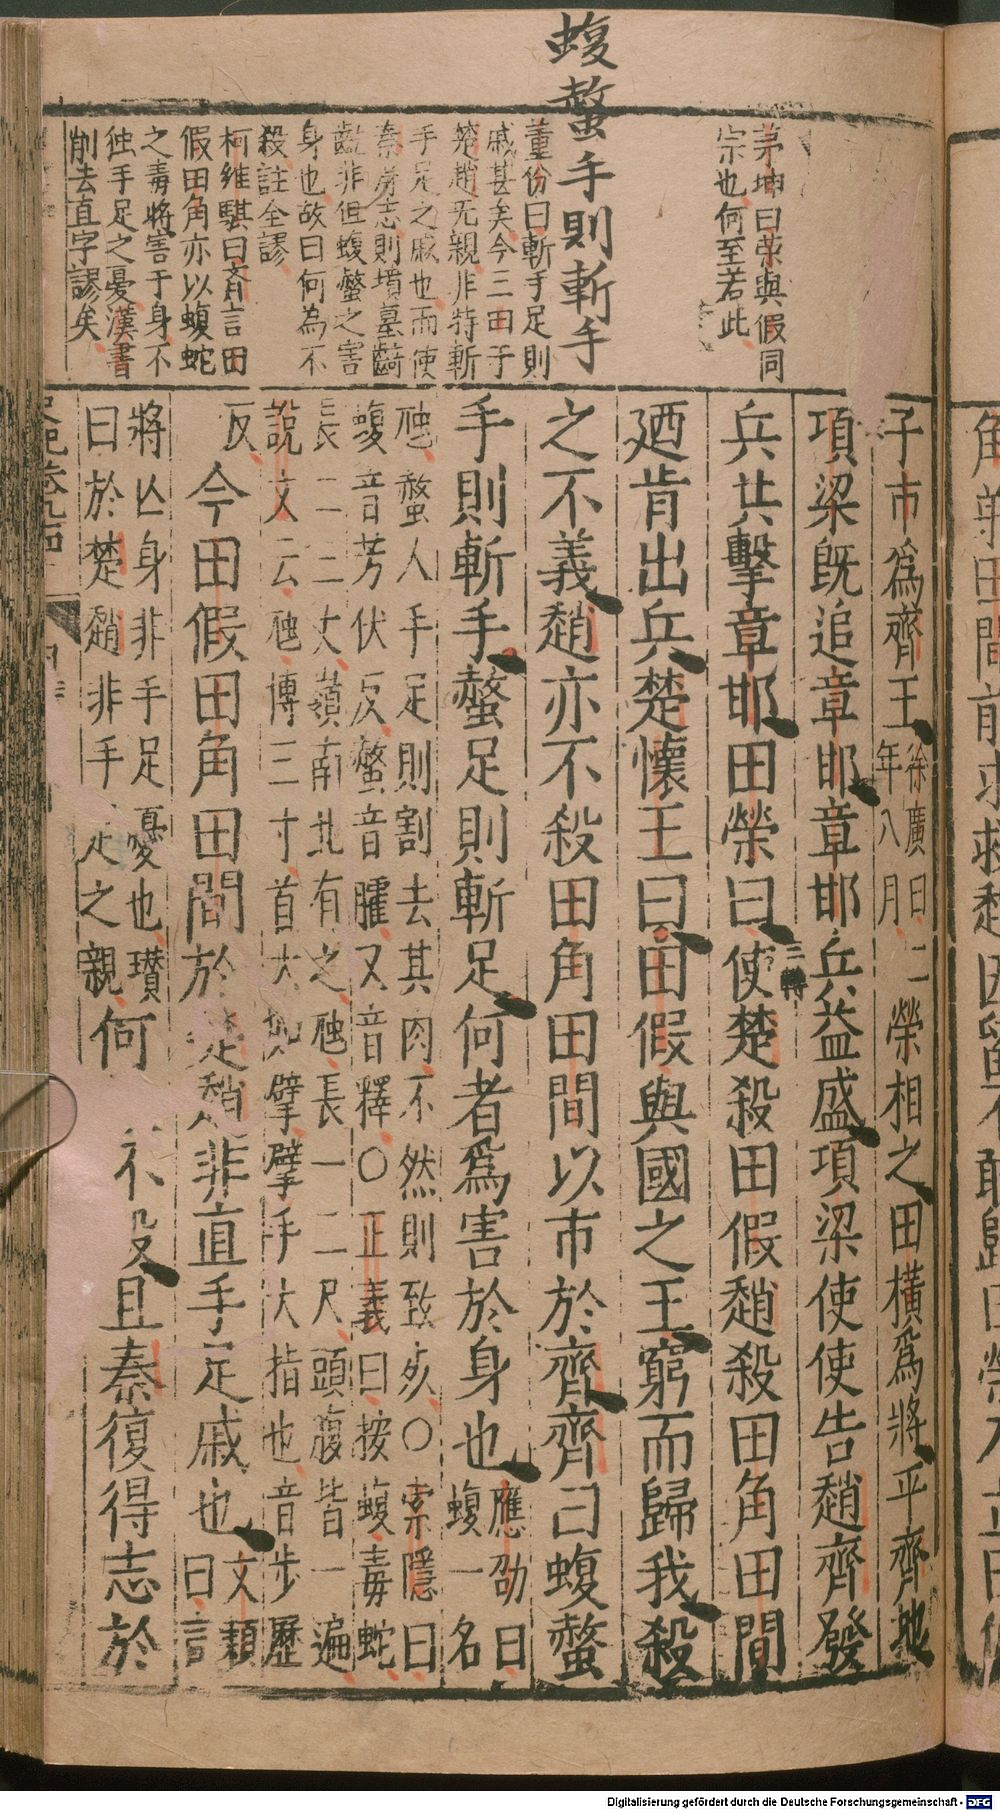 蝮螫手則斬手
茅坤曰荣與假同
宗也何至若此
董份曰斬手足則
戚甚矣今三田于
楚趙无親非特斬
手足之戚也而使
秦得志則墳墓齮
齕非但蝮螫之害
身也故曰何為不
殺註全謬
柯維騏曰齊言田
假田角亦以蝮蛇
之毒將害于身不
独手足之憂漢書
削去直字謬矣
子市爲齊王徐廣曰二年八月榮相之田橫爲將平齊地
項梁既追章邯章邯兵益盛項梁使使告趙齊發
兵共擊章邯田榮曰使楚殺田假趙殺田角田間
三轉
廼肯出兵楚懷王曰田假與國之王窮而歸我殺
之不義趙亦不殺田角田間以市於齊齊曰蝮螫
手則斬手螫足則斬足何者爲害於身也應劭曰蝮一名
虺螫人手足則割去其肉不然則致死○索隱曰
蝮音芳伏反螫音臛又音釋○正義曰按蝮毒蛇
長二三丈嶺南北有之虺長一二尺頭腹皆一遍
說文云虺博三寸首大如擘擘手大指也音步歷
反今田假田角田間於楚趙非直手足戚也文穎曰言
將亡身非手足憂也瓚
曰於楚趙非手足之親何
不殺且秦復得志於
角弟田間前求救趙因留不敢歸田榮乃立田
Digitalisierung gefördert durch die Deutsche Forschungsgemeinschaft - DFG